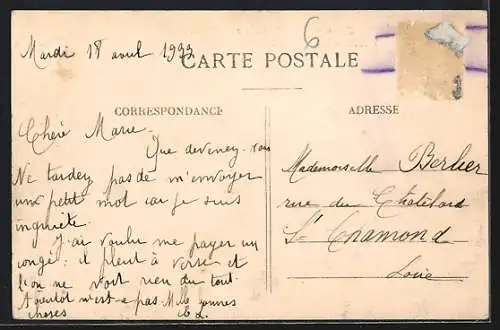 Mardi 18 avril 1933
6
CARTE POSTALE
CORRESPONDANCE
ADRESSE
Chère Marie.
Que devenez-vous
Ne tardez pas de m'envoyer
un petit mot car je suis
inquiète.
J'ai voulu me payer un
congé: il pleut à verse et
l'on ne voit rien du tout.
n'est-ce pas Mlle
choses
Mademoiselle Berlier
rue du Chatelard
St Chamond
Loire